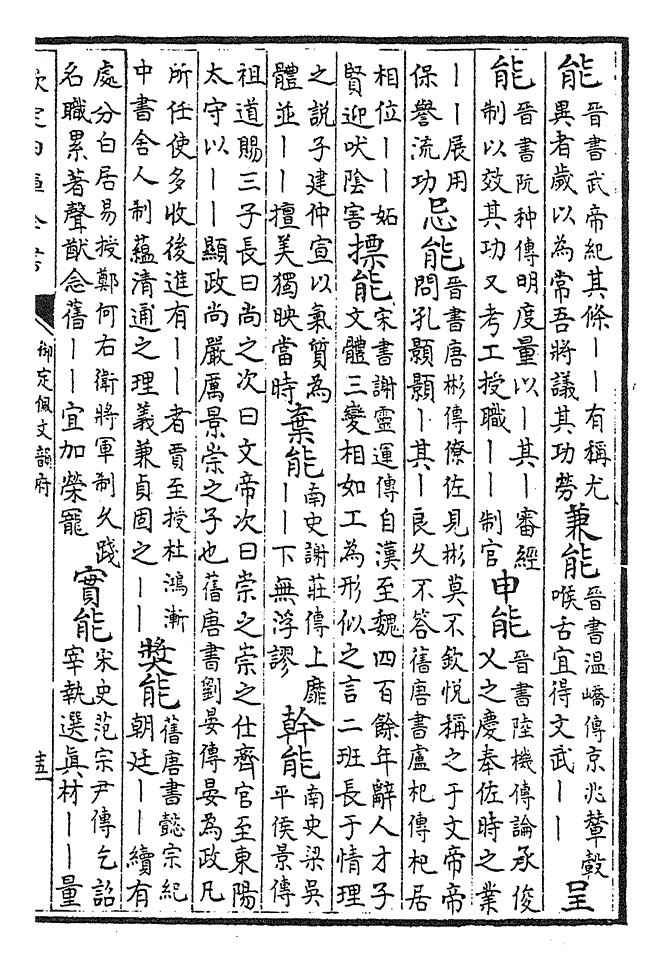 能
晉書武帝紀其條丨丨有稱尤
異者歲以為常吾將議其功勞
兼能
晉書温嶠傳京兆輦轂
喉舌宜得文武丨丨
呈
能
晉書阮种傳明度量以丨其丨審經
制以效其功又考工授職丨丨制官
申能
晉書陸機傳論承俊
乂之慶奉佐時之業
丨丨展用
保譽流功
忌能
晉書唐彬傳僚佐見彬莫不欽悦稱之于文帝帝
問孔顥顥丨其丨良久不答舊唐書盧杞傳杞居
相位丨丨妬
賢迎吠陰害
摽能
宋書謝靈運傳自漢至魏四百餘年辭人才子
文體三變相如工為形似之言二班長于情理
之說子建仲宣以氣質為
體並丨丨擅美獨映當時
棄能
南史謝莊傳上靡
丨丨下無浮謬
幹能
南史梁吳
平侯景傳
祖道賜三子長曰尚之次曰文帝次曰崇之崇之仕齊官至東陽
太守以丨丨顯政尚嚴厲景崇之子也舊唐書劉晏傳晏為政凡
所任使多收後進有丨丨者賈至授杜鴻漸
中書舍人制蘊清通之理義兼貞固之丨丨
奬能
舊唐書懿宗紀
朝廷丨丨續有
處分白居易授鄭何右衛將軍制久踐
名職累著聲猷念舊丨丨宜加榮寵
實能
宋史范宗尹傳乞詔
宰執選眞材丨丨量
欽定四庫全書
御定佩文韻府